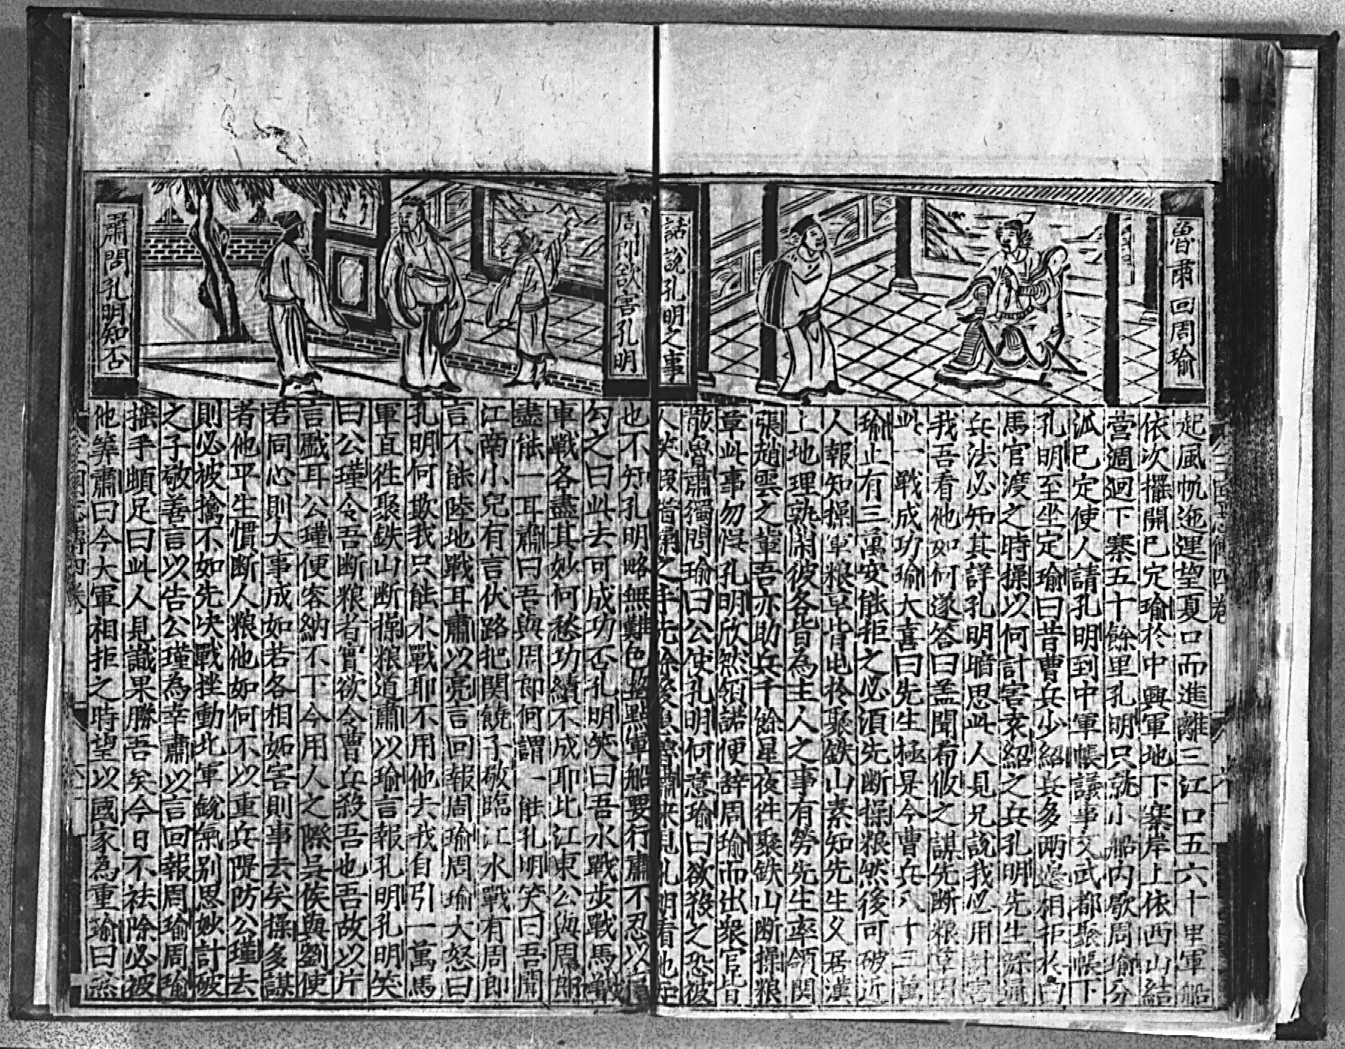 魯肅回周瑜
話說孔明之事
起風帆迤逞望夏口而進離三江口五六十里軍船
依次擺開已定瑜於中興軍地下寨岸上依西山結
營週迴下寨五十餘里孔明只就小船內歇周瑜分
派已定使人請孔明到中軍帳議事文武都聚帳下
孔明至坐定瑜曰昔曹兵少紹兵多兩邊相拒於白
馬官渡之時操以何計害袁紹之兵孔明先生深通
兵法必知其詳孔明暗思此人見兄說我必用計害
我吾看他如何遂答曰盖聞有攸之謀先斷粮草因
此一戰成功瑜大喜曰先生極是今曹兵八十三萬
瑜止有三萬安能拒之必須先斷操粮然後可破近
人報知操軍粮草皆屯於聚鉄山素知先生久居漢
上地理熟閑彼各皆為主人之事有勞先生率領関
張趙雲之軰吾亦助兵千餘星夜徃聚鉄山断操粮
草此事勿悮孔明欣然領諾便辞周瑜而出衆官皆
散魯肅獨問瑜曰公使孔明何意瑜曰欲殺之恐彼
人笑 之手 魯肅来見孔明看他
周郎欲害孔明
肅問孔明知否
也不知孔明略無難色整點軍船要行肅不忍以言
勾之曰此去可成功否孔明笑曰吾水戰步戰馬戰
車戰各盡其妙何愁功績不成耶比江東公與周郎
盡能一耳肅曰吾與周郎何謂一能孔明笑曰吾聞
江南小兒有言伏路把関饒子敬臨江水戰有周郎
言不能陸地戰耳肅以亮言回報周瑜周瑜大怒曰
孔明何欺我只能水戰耶不用他去我自引一萬馬
軍直徃聚鉄山断操粮道肅以瑜言報孔明孔明笑
曰公瑾令吾断粮者實欲令曹兵殺吾也吾故以片
言戲耳公瑾便容納不下今用人之際吳侯與劉使
君同心則大事成如若各相妬害則事去矣操多謀
者他平生慣断人粮他如何不以重兵隄防公瑾去
則必被擒不如先决戰挫動北軍銳氣别思妙計破
之子敬善言以告公瑾為幸肅以言回報周瑜周瑜
搖手頓足曰此人見識果勝吾矣今日不祛除必被
他筭肅曰今大軍相拒之時望以國家為重瑜曰然